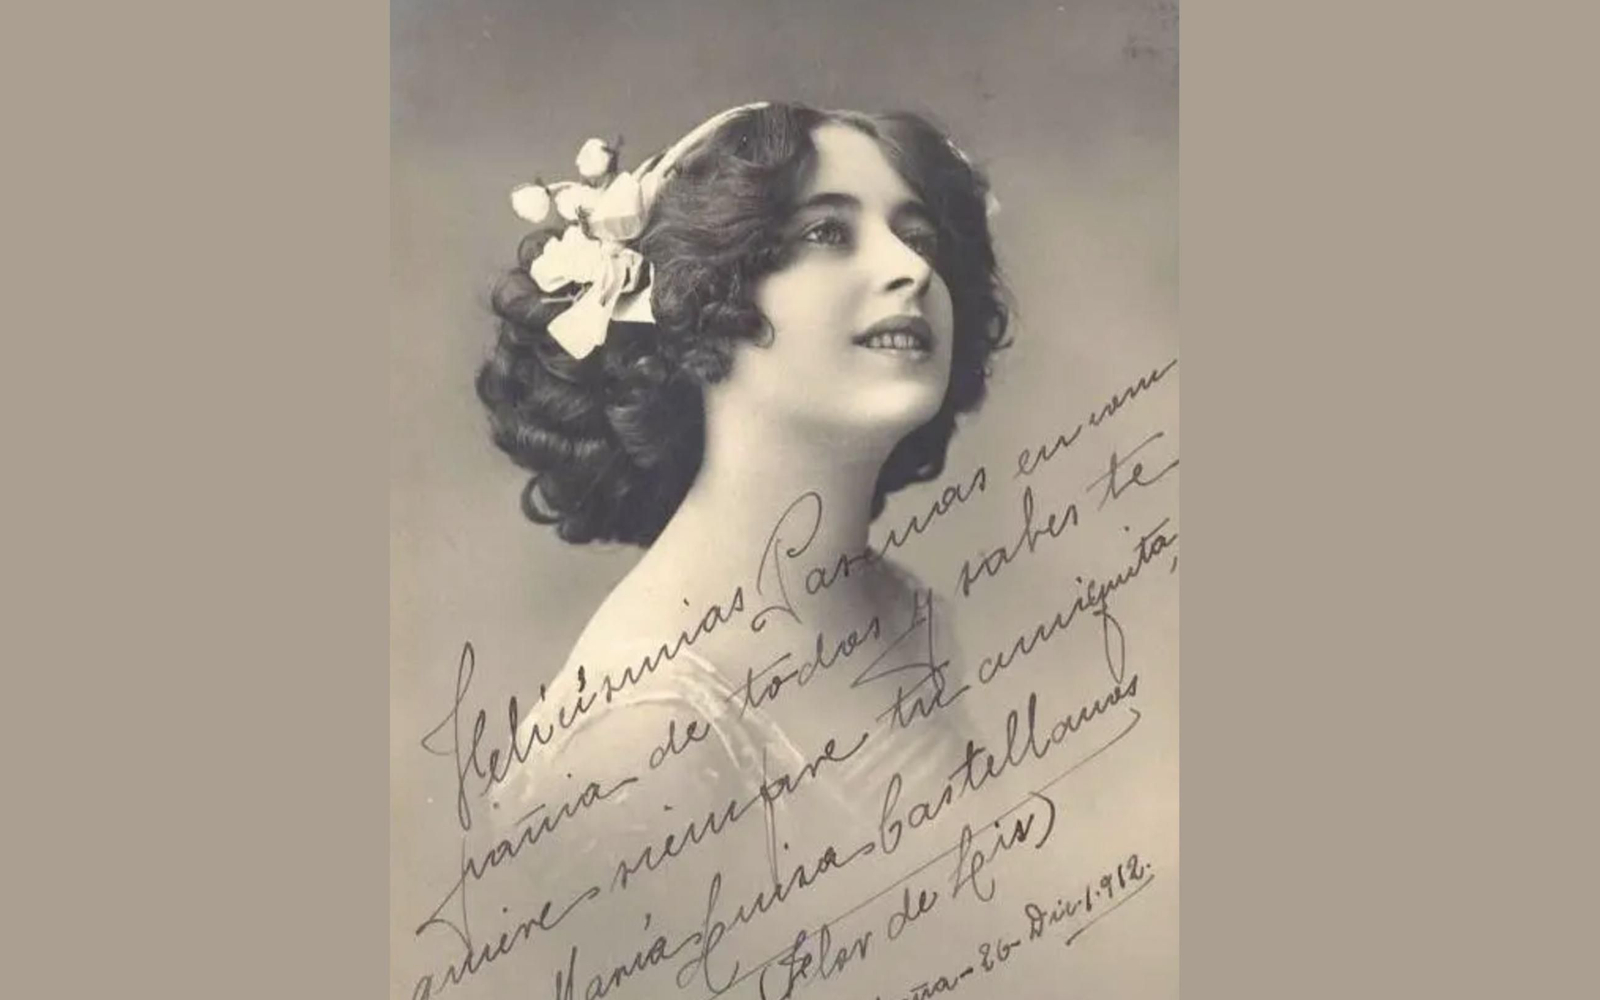 Felicísimas Pascuas en com
pañia de todos y sabes te
quiere siempre tu amiguita,
María Luisa Castellanos
(Flor de Lis)
26 Dic. 1.912.